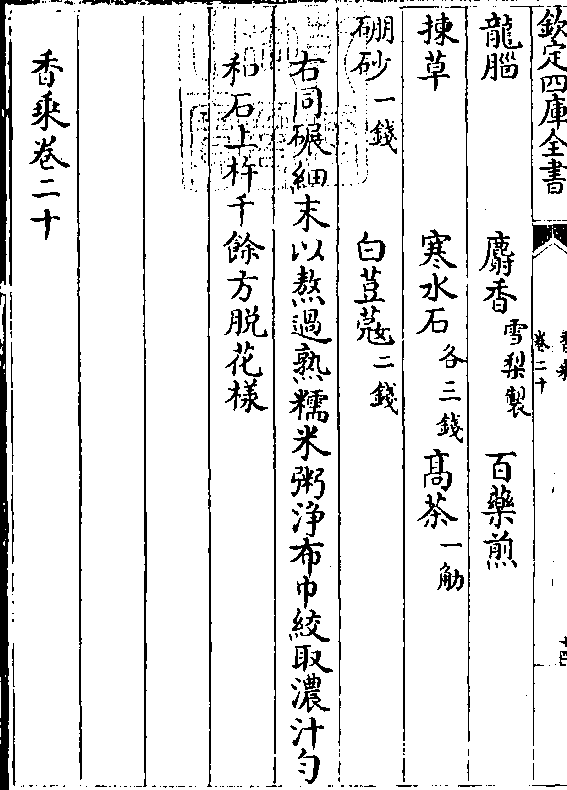 欽定四庫全書
香乘
卷二十
十四
龍腦　麝香雪梨製　百藥煎
揀草　寒水石各三錢　高茶一觔
硼砂一錢　白荳蔲二錢
右同碾細末以熬過熟糯米粥浄布巾絞取濃汁勻
和石上杵千餘方脫花樣
香乘卷二十